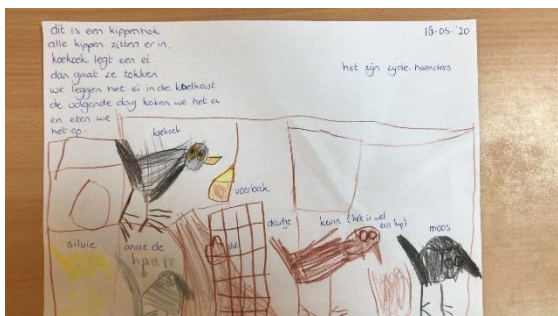 dit is een kippenhok
alle kippen zitten er in,
koekoek legt een ei
dan gaat ze tokken.
we leggen het ei in de koelkast
de volgende dag koken we het ei
en eten we
het op.
18-05-'20
het zijn zijde-hoenders
koekoek
voerbak
deurtje
kevin (het is wel
een hip)
moos
silvie
annie de
haan
slot